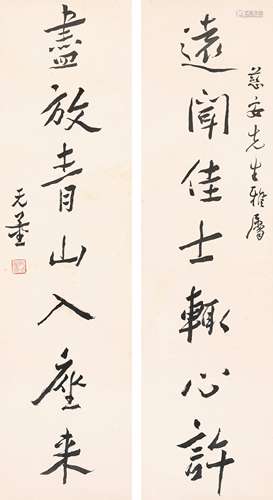 慈安先生雅属
遠聞佳士輒心許
盡放青山入座来
无量